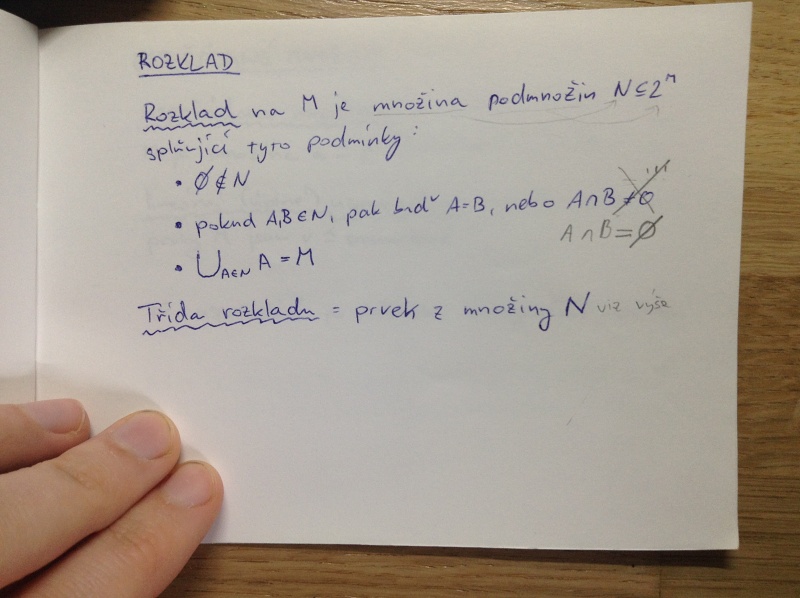 ROZKLAD
Rozklad na M je množina podmnožin N⊆2^M
splňující tyto podmínky:
• ∅∉N
• pokud A,B∈N, pak buď A=B, nebo A∩B≠∅
A∩B=∅
• ⋃_{A∈N} A = M
Třída rozkladu = prvek z množiny N viz výše